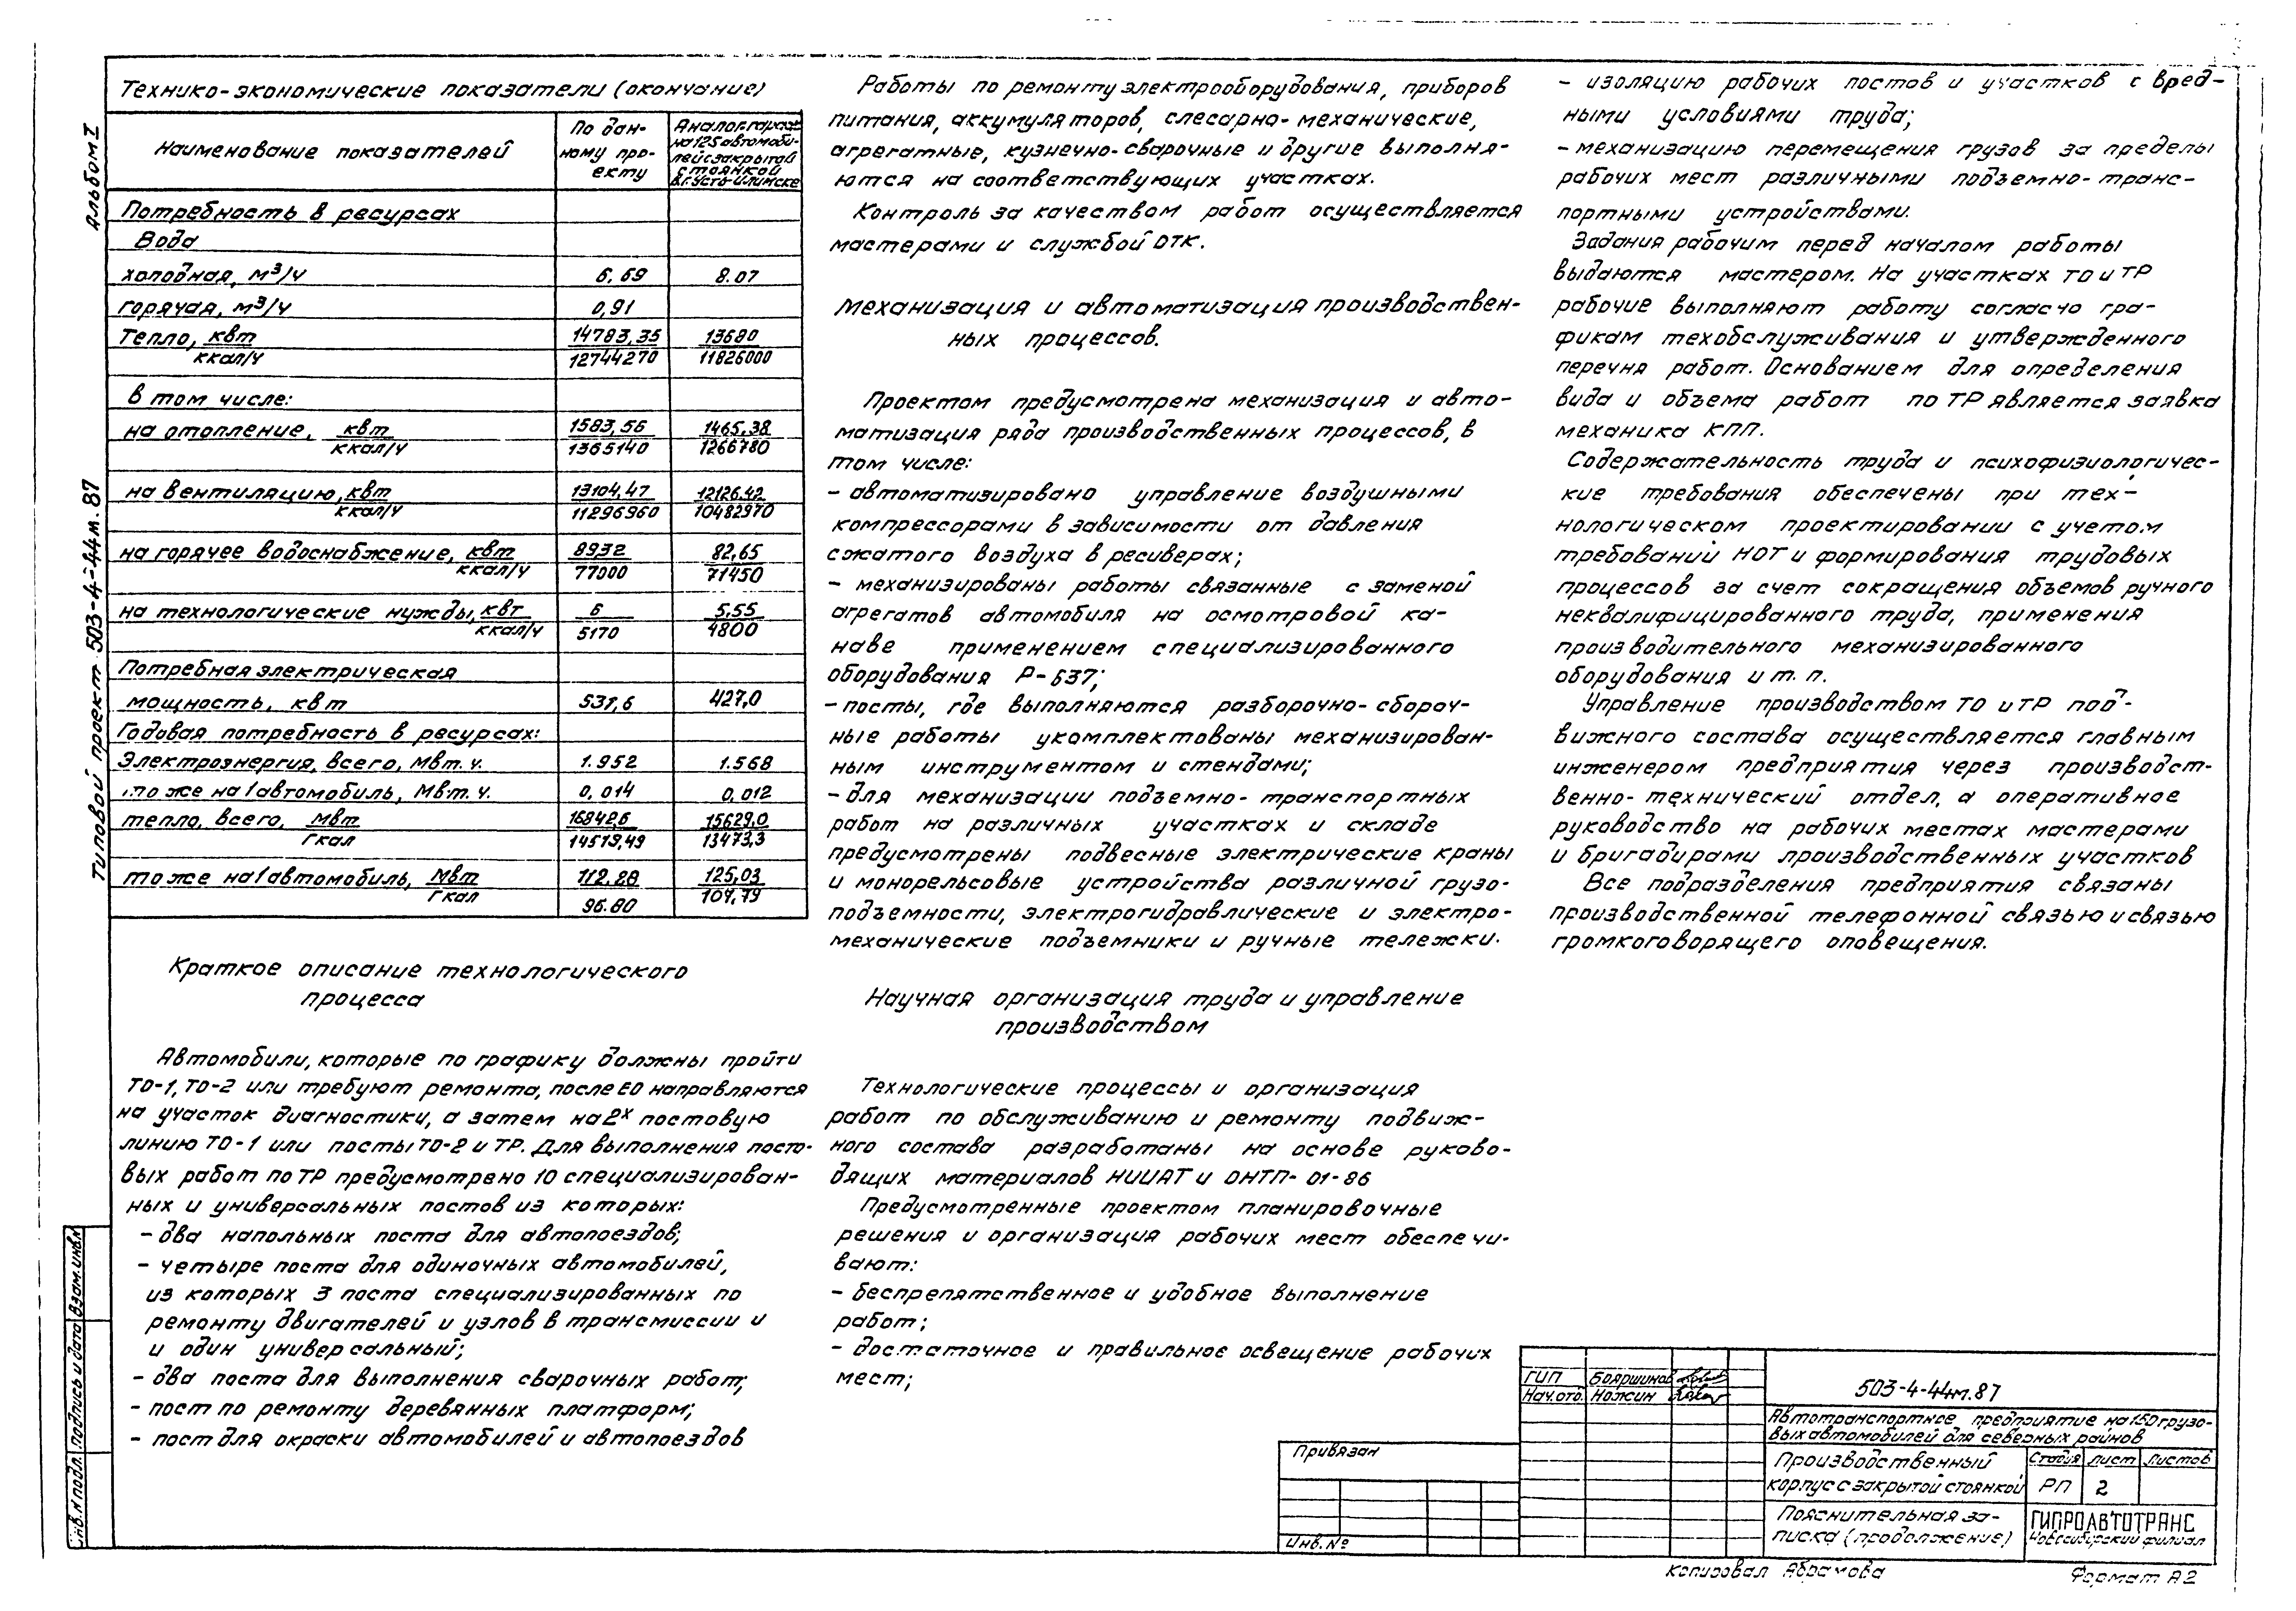 Альбом I
Типовой проект 503-4-44м.87
Технико-экономические показатели (окончание)
Наименование показателей
По дан-
ному про-
екту
Аналог гараж
на 125 автомоби-
лей с закрытой
стоянкой
в г. Усть-Илимске
Потребность в ресурсах
Вода
холодная, м³/ч 6.69 8.07
горячая, м³/ч 0,91
Тепло, квт 14783,35 13680
ккал/ч 12744270 11826000
в том числе:
на отопление, квт 1583,56 1465.38
ккал/ч 1365140 1266780
на вентиляцию, квт 13104,47 12126.42
ккал/ч 11296960 10482970
на горячее водоснабжение, квт 8932 82,65
ккал/ч 77000 71450
на технологические нужды, квт 6 5.55
ккал/ч 5170 4800
Потребная электрическая
мощность, квт 531,6 427,0
Годовая потребность в ресурсах:
Электроэнергия, всего, Мвт.ч. 1.952 1.568
то же на 1 автомобиль, Мвт.ч. 0,014 0,012
тепло, всего, Мвт 16842,6 15629,0
Гкал 14519,49 13473,3
то же на 1 автомобиль, Мвт 112.28 125,03
Гкал 96.80 107,79
Краткое описание технологического
процесса
Автомобили, которые по графику должны пройти
ТО-1, ТО-2 или требуют ремонта, после ЕО направляются
на участок диагностики, а затем на 2х постовую
линию ТО-1 или посты ТО-2 и ТР. Для выполнения посто-
вых работ по ТР предусмотрено 10 специализирован-
ных и универсальных постов из которых:
- два напольных поста для автопоездов;
- четыре поста для одиночных автомобилей,
из которых 3 поста специализированных по
ремонту двигателей и узлов в трансмиссии и
и один универсальный;
- два поста для выполнения сварочных работ;
- пост по ремонту деревянных платформ;
- пост для окраски автомобилей и автопоездов
Работы по ремонту электрооборудования, приборов
питания, аккумуляторов, слесарно-механические,
агрегатные, кузнечно-сварочные и другие выполня-
ются на соответствующих участках.
Контроль за качеством работ осуществляется
мастерами и службой ОТК.
Механизация и автоматизация производствен-
ных процессов.
Проектом предусмотрена механизация и авто-
матизация ряда производственных процессов, в
том числе:
- автоматизировано управление воздушными
компрессорами в зависимости от давления
сжатого воздуха в ресиверах;
- механизированы работы связанные с заменой
агрегатов автомобиля на осмотровой ка-
наве применением специализированного
оборудования Р-637;
- посты, где выполняются разборочно-сбороч-
ные работы укомплектованы механизирован-
ным инструментом и стендами;
- для механизации подъемно-транспортных
работ на различных участках и складе
предусмотрены подвесные электрические краны
и монорельсовые устройства различной грузо-
подъемности, электрогидравлические и электро-
механические подъемники и ручные тележки.
Научная организация труда и управление
производством
Технологические процессы и организация
работ по обслуживанию и ремонту подвиж-
ного состава разработаны на основе руково-
дящих материалов НИИАТ и ОНТП-01-86
Предусмотренные проектом планировочные
решения и организация рабочих мест обеспечи-
вают:
- беспрепятственное и удобное выполнение
работ;
- достаточное и правильное освещение рабочих
мест;
- изоляцию рабочих постов и участков с вред-
ными условиями труда;
- механизацию перемещения грузов за пределы
рабочих мест различными подъемно-транс-
портными устройствами.
Задания рабочим перед началом работы
выдаются мастером. На участках ТО и ТР
рабочие выполняют работу согласно гра-
фикам техобслуживания и утвержденного
перечня работ. Основанием для определения
вида и объема работ по ТР является заявка
механика КПП.
Содержательность труда и психофизиологичес-
кие требования обеспечены при тех-
нологическом проектировании с учетом
требований НОТ и формирования трудовых
процессов за счет сокращения объемов ручного
неквалифицированного труда, применения
производительного механизированного
оборудования и т. п.
Управление производством ТО и ТР под-
вижного состава осуществляется главным
инженером предприятия через производст-
венно-технический отдел, а оперативное
руководство на рабочих местах мастерами
и бригадирами производственных участков
Все подразделения предприятия связаны
производственной телефонной связью и связью
громкоговорящего оповещения.
Инв. № подл. Подпись и дата Взам. инв.№
Привязан
Инв. №
ГИП Бояршинов
Нач. отд. Ножкин
503-4-44м.87
Автотранспортное предприятие на 150 грузо-
вых автомобилей для северных районов
Производственный
корпус с закрытой стоянкой
Стадия Лист Листов
РП 2
Пояснительная за-
писка (продолжение)
ГИПРОАВТОТРАНС
Новосибирский филиал
Копировал Абрамова
Формат А2